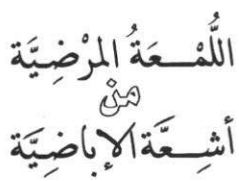 اللُّمْعَةُ المرْضِيَّة
من
أشِعَّة الإباضِيَّة